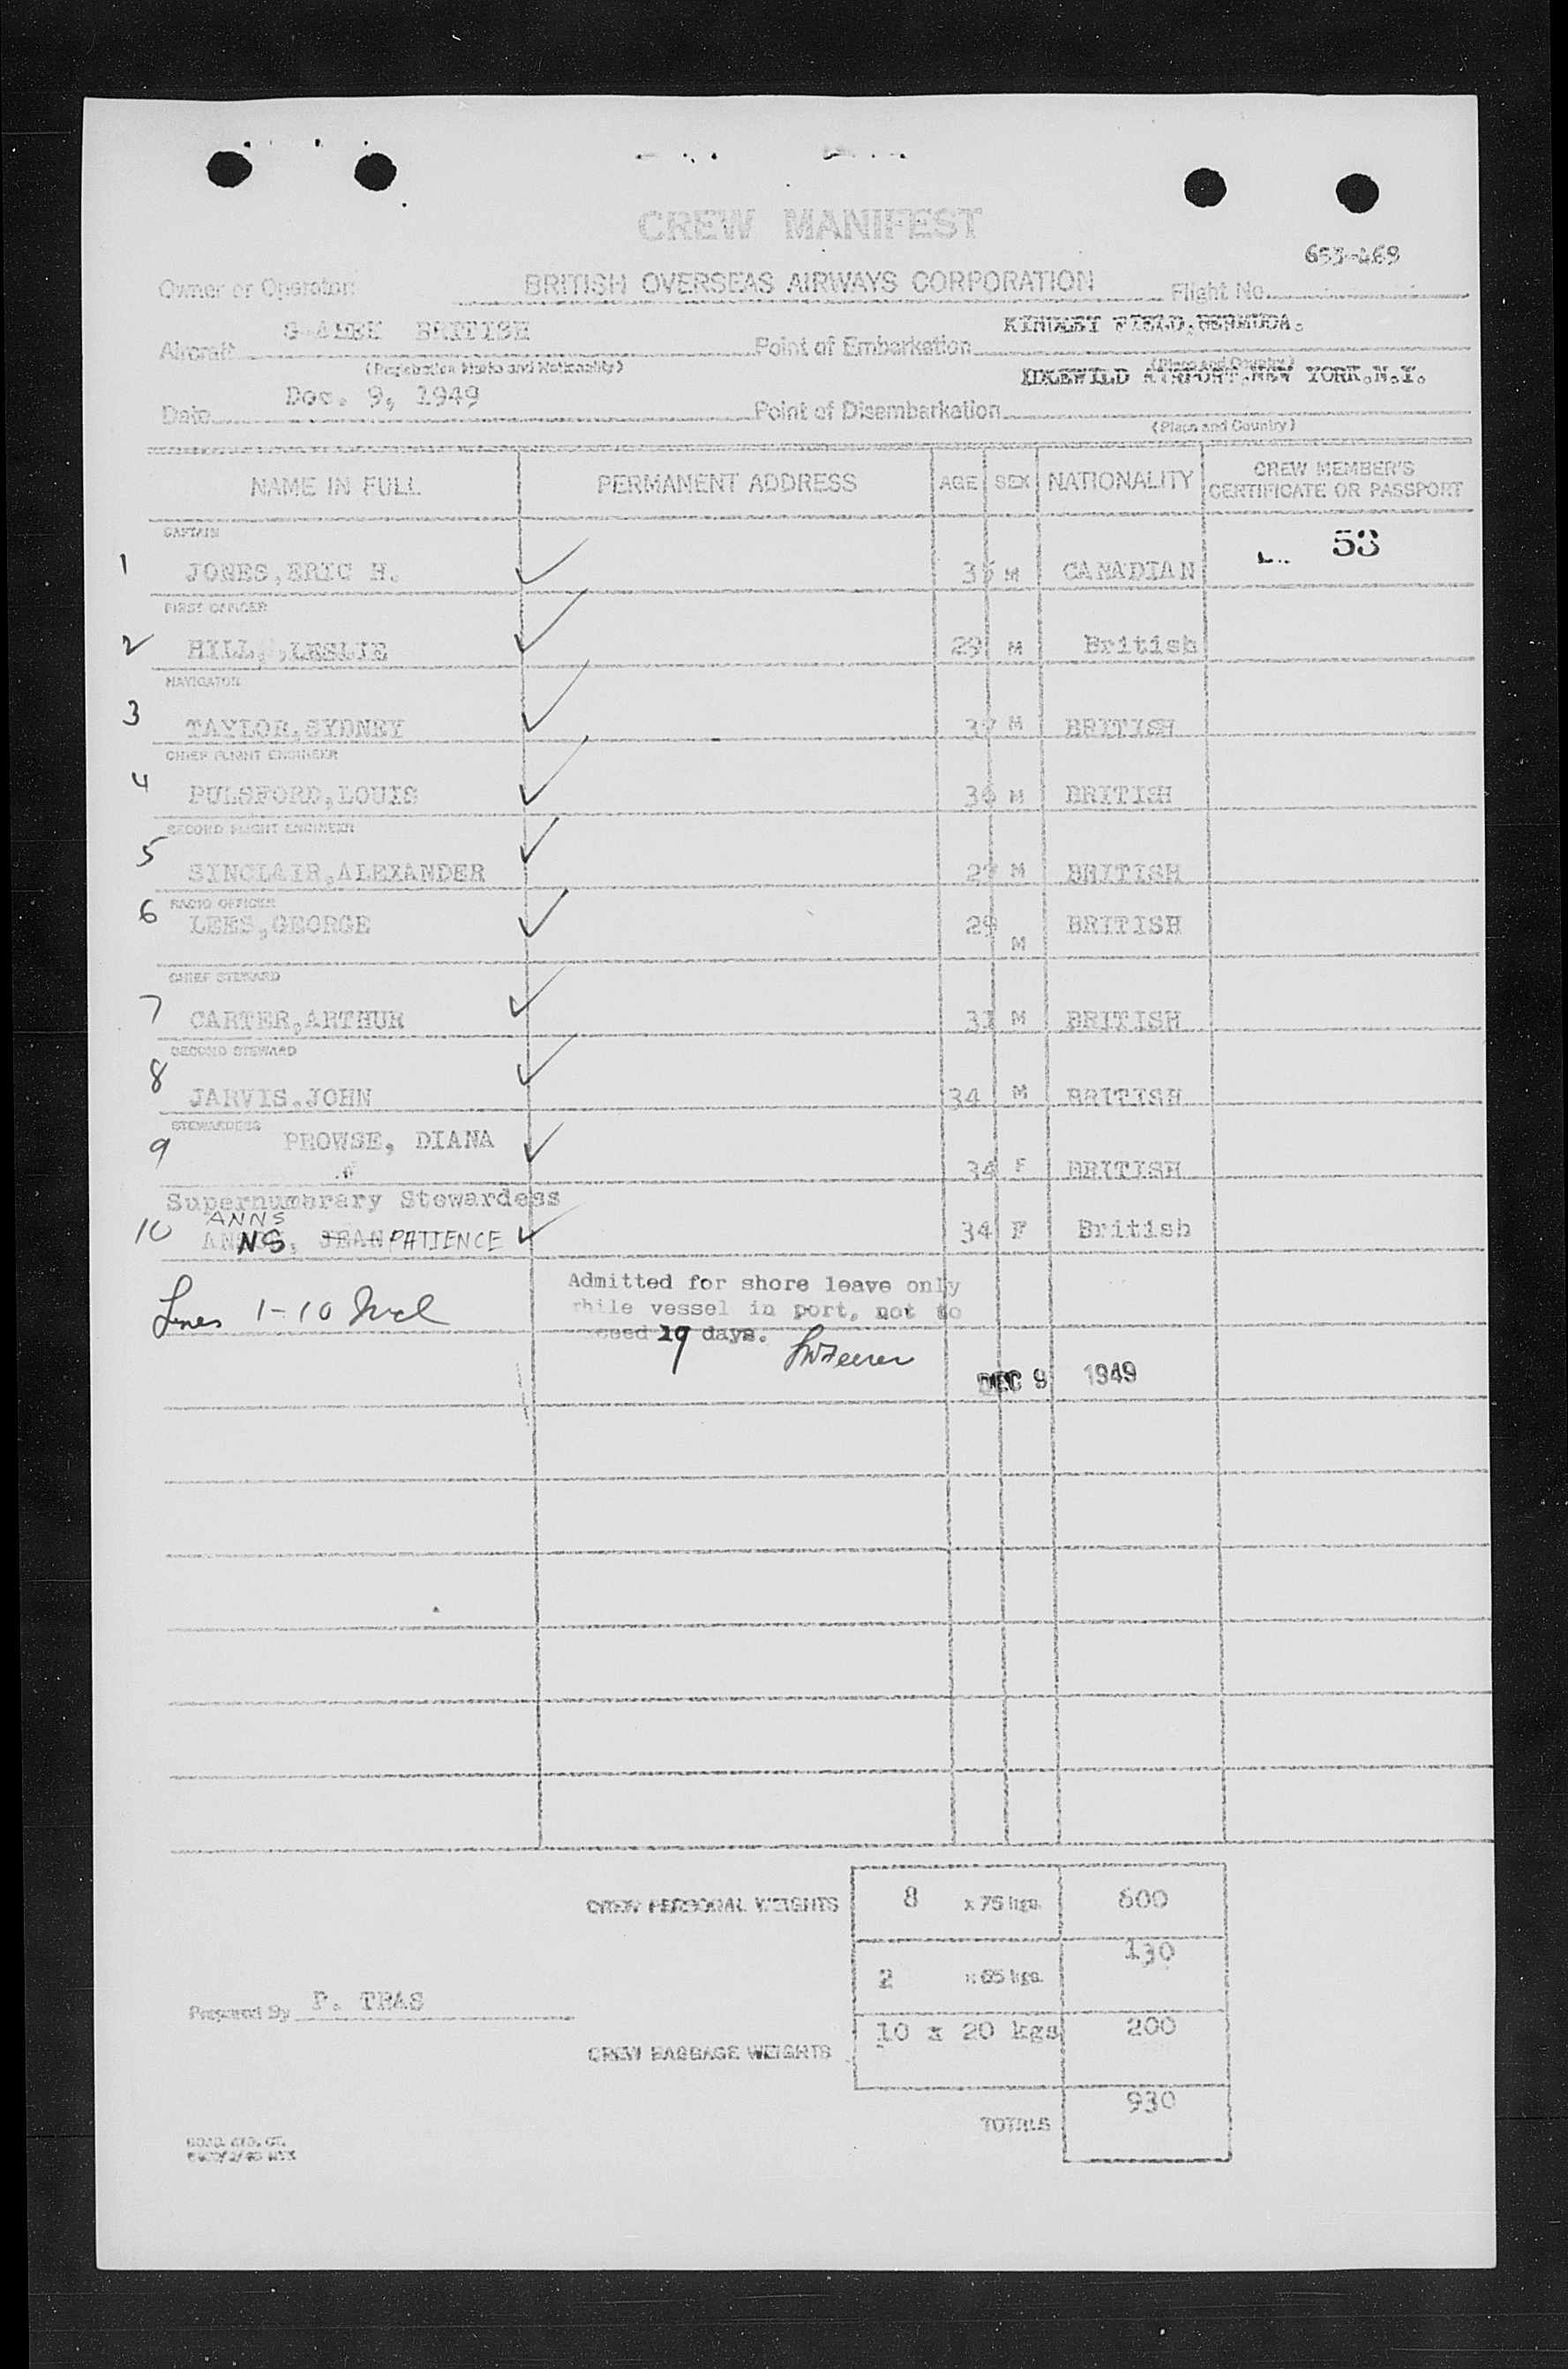 CREW MANIFEST
Owner or Operator: BRITISH OVERSEAS AIRWAYS CORPORATION Flight No.
Aircraft BRITISH Point of Embarkation KINDLEY FIELD, BERMUDA.
(Registration Marks and Nationality) (Place and Country)
Date Dec. 9, 1949 Point of Disembarkation IDLEWILD AIRPORT, NEW YORK.N.Y.
(Place and Country)
NAME IN FULL PERMANENT ADDRESS AGE SEX NATIONALITY CREW MEMBER'S CERTIFICATE OR PASSPORT
53
CAPTAIN
1 JONES,ERIC H. M CANADIAN
FIRST OFFICER
2 HILL, ,LESLIE 29 M British
NAVIGATOR
3 TAYLOR,SYDNEY M BRITISH
CHIEF FLIGHT ENGINEER
4 PULSFORD,LOUIS 36 M BRITISH
SECOND FLIGHT ENGINEER
5 SINCLAIR,ALEXANDER 27 M BRITISH
RADIO OFFICER
6 LEES,GEORGE 29 M BRITISH
CHIEF STEWARD
7 CARTER,ARTHUR 31 M BRITISH
SECOND STEWARD
8 JARVIS.JOHN 34 M BRITISH
STEWARDESS
9 PROWSE, DIANA 34 F BRITISH
Supernumerary Stewardess
ANNS
10 JEAN PATIENCE 34 F British
Lines 1-10 Incl
Admitted for shore leave only
while vessel in port, not to
ceed 29 days.
DEC 9 1949
CREW PERSONAL WEIGHTS 8 x 75 kgs. 600
2 x 65 kgs. 130
Prepared By P. TRAS
CREW BAGGAGE WEIGHTS 10 x 20 kgs 200
TOTALS 930